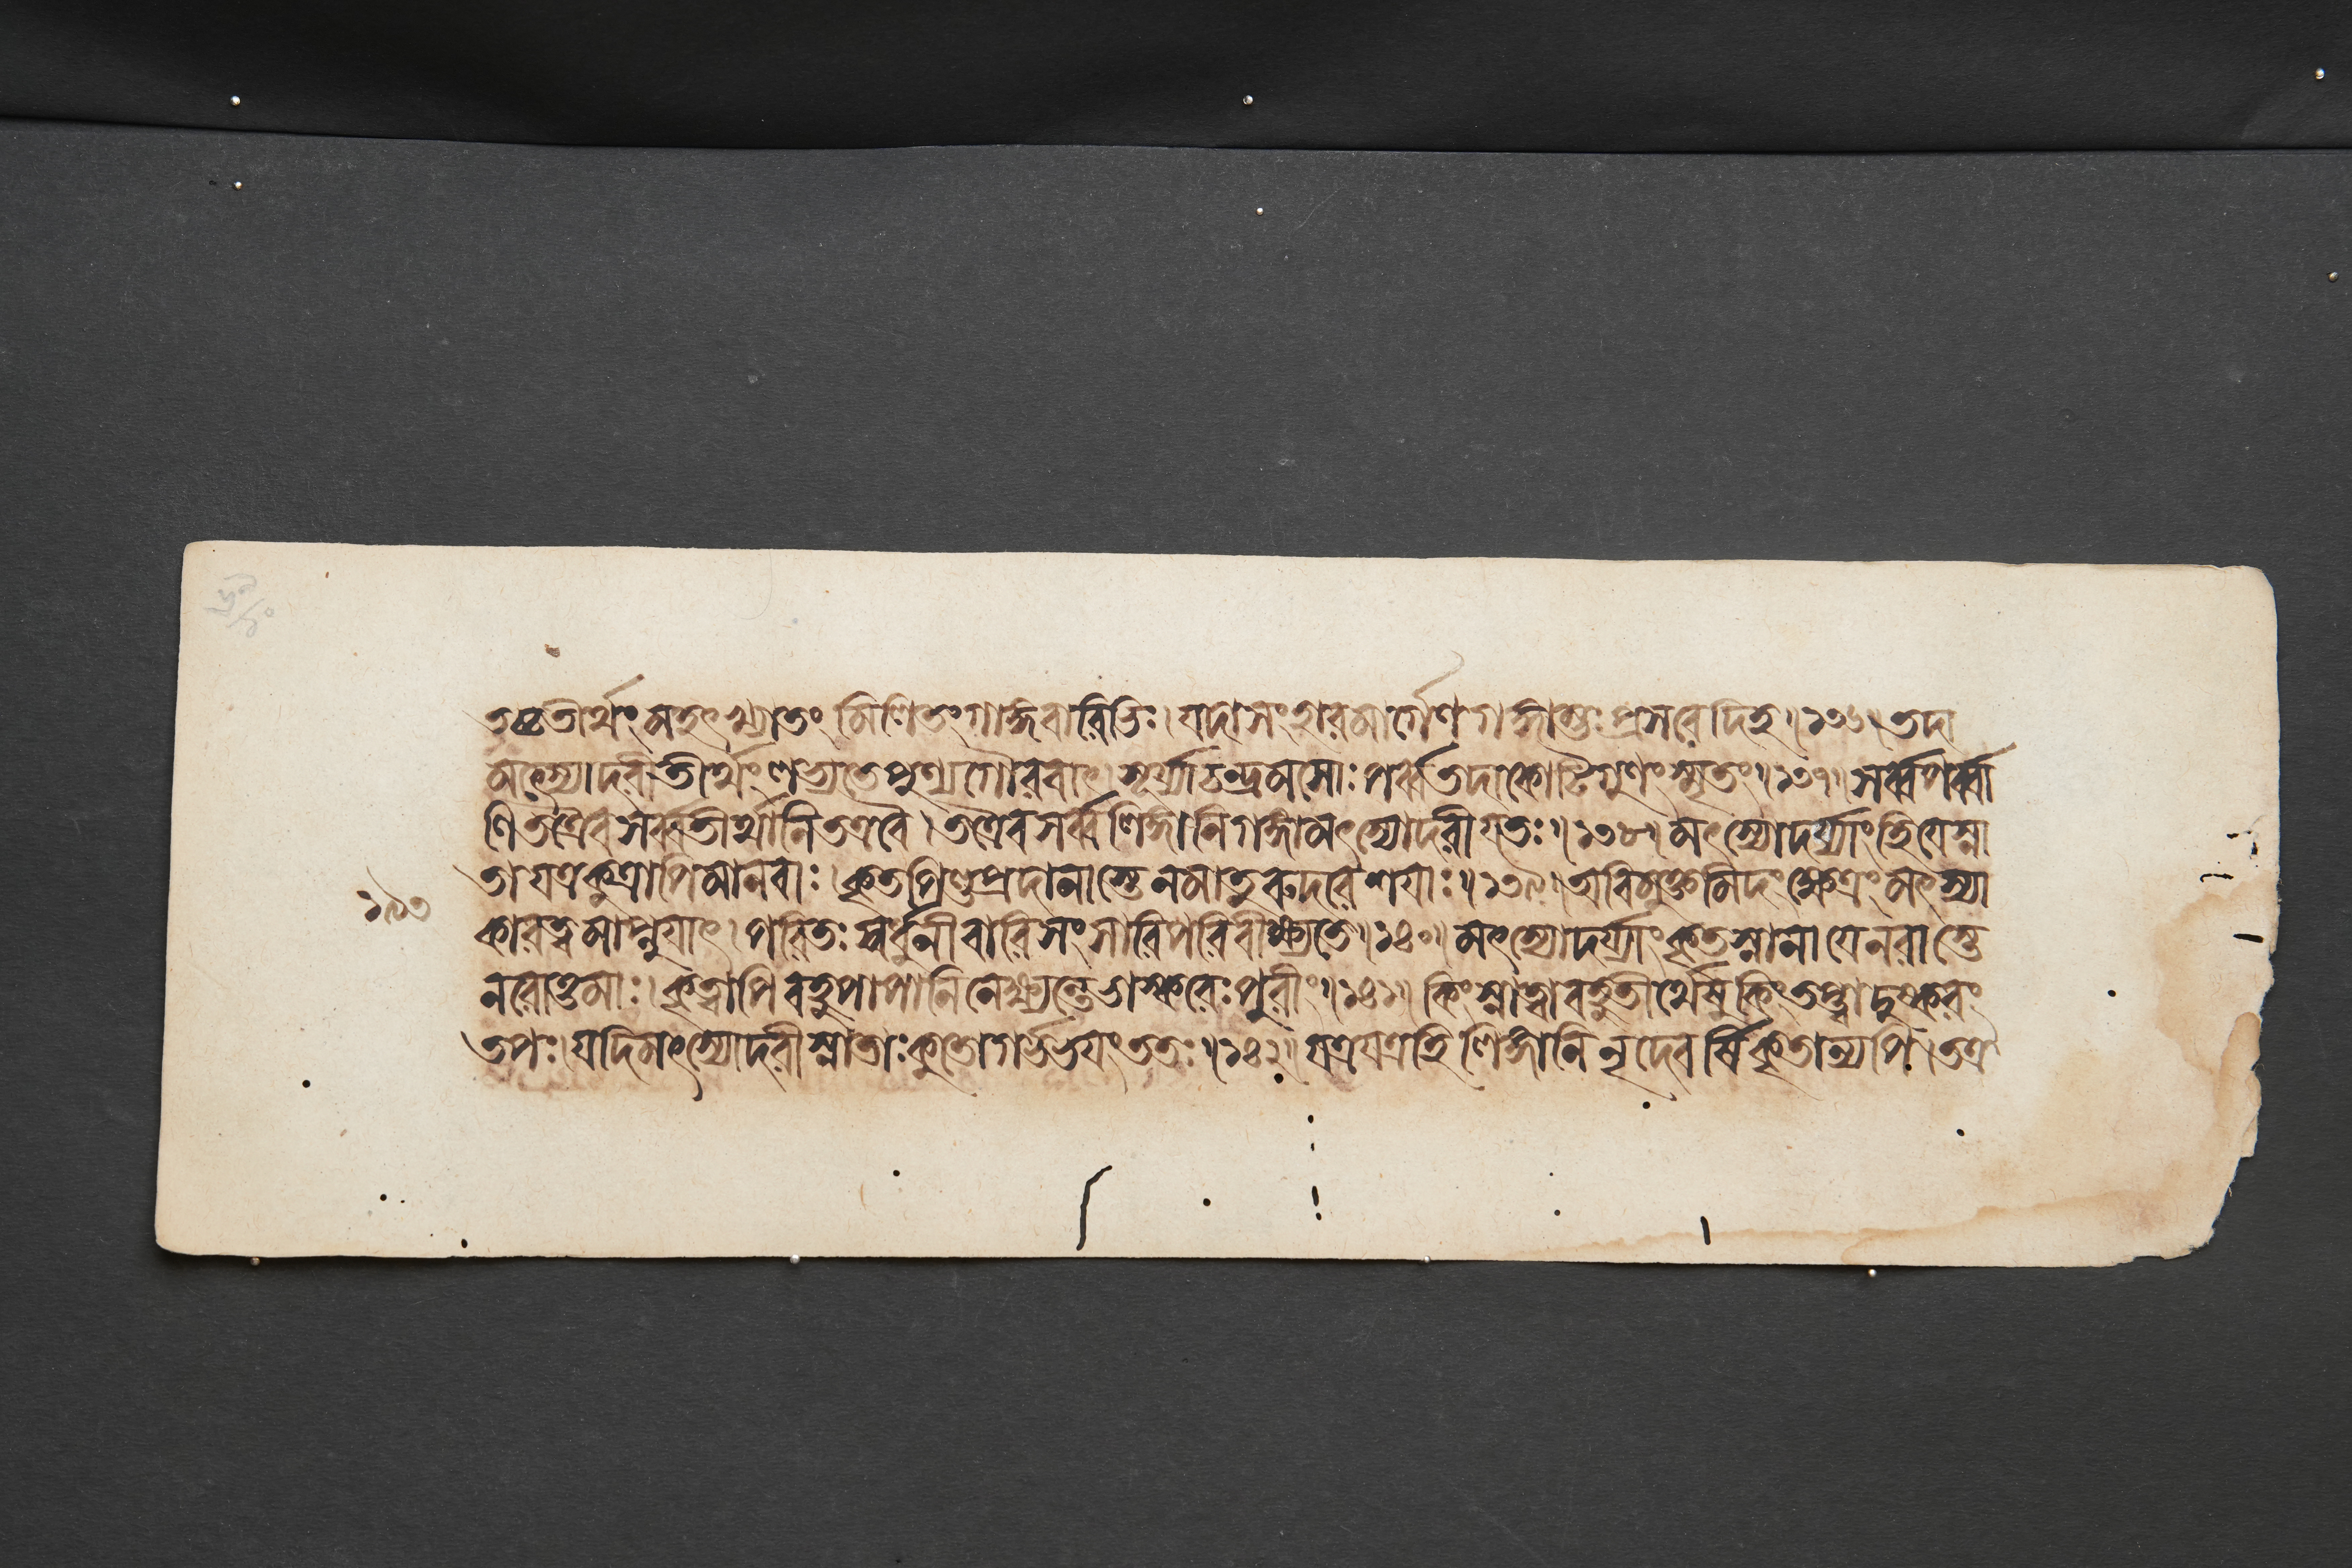 তচ্চতীর্থংমহৎখ্যাতং মিলিতংগাঙ্গবারিভিঃ। যদাসংহারমার্গেণগঙ্গাম্ভঃপ্রসরেদিহ॥১৩৬॥তদা
মৎস্যোদরীতীর্থংলভ্যতেপুণ্যগৌরবাৎ। সূর্য্যাচন্দ্রমসোঃপর্ব্বতদাকোটিগুণংস্মৃতং॥১৩৭॥সর্ব্বপর্ব্বা
ণিতত্রৈবসর্ব্বতীর্থানিতত্রবৈ।তত্রৈবসর্ব্বলিঙ্গানিগঙ্গামৎস্যোদরীযতঃ॥১৩৮॥মৎস্যোদর্য্যাংহিযেস্না
তাযত্রকুত্রাপিমানবাঃ।কৃতপিণ্ডপ্রদানাস্তেনমাতুরুদরেশয়াঃ॥১৩৯॥অবিমুক্তমিদংক্ষেত্রংমৎস্যা
১৯৩
কারত্বমাপ্নুয়াৎ।পরিতঃস্বর্ধুনীবারিসংসারিপরিবীক্ষ্যতে॥১৪০॥মৎস্যোদর্য্যাংকৃতস্নানাযেনরাস্তে
নরোত্তমাঃ।কৃত্বাপিবহুপাপানিনেক্ষ্যন্তেভাস্করেঃপুরীং॥১৪১॥কিংস্নাত্বাবহুতীর্থেষুকিংতপ্ত্বাদুষ্করং
তপঃ।যদিমৎস্যোদরীস্নাতাঃকুতোগর্ভভয়ংততঃ॥১৪২॥যত্রযত্রহিলিঙ্গানিনৃদেবর্ষিকৃতান্যপি।তত্র